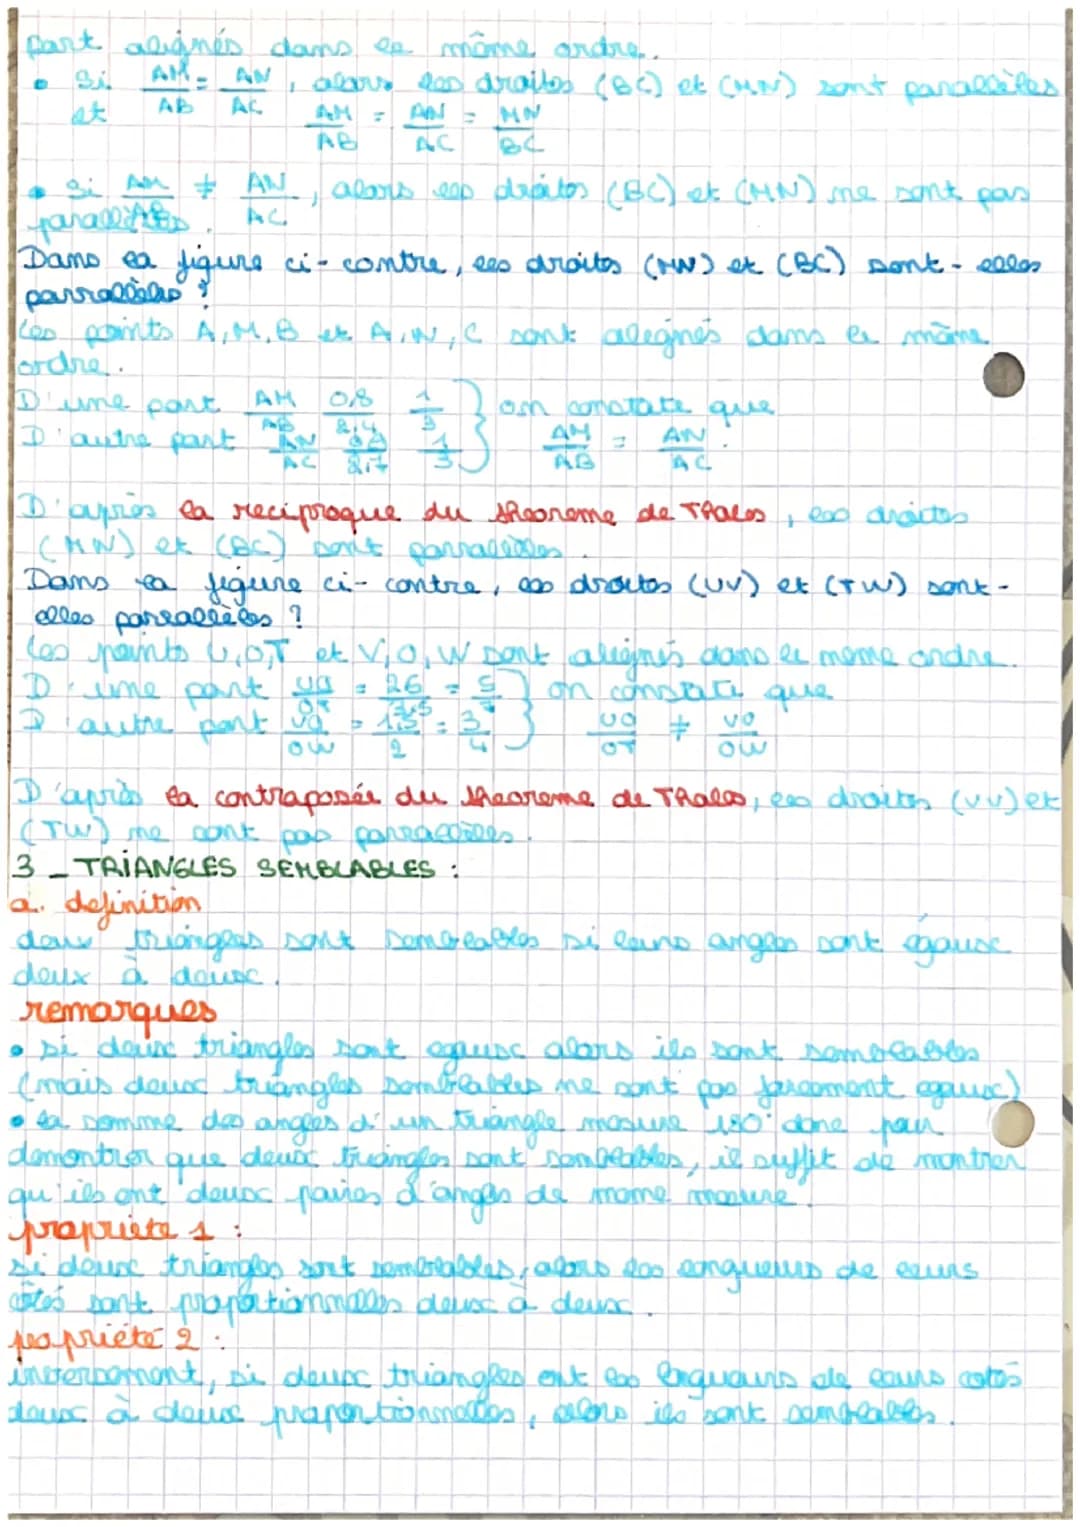 part alignés dans le même ordre.
• Si AM/AB = AN/AC, alors les droites (BC) et (MN) sont parallèles
et AM/AB = AN/AC = MN/BC
• Si AM/AB ≠ AN/AC, alors les droites (BC) et (MN) ne sont pas
parallèles.
Dans la figure ci-contre, les droites (MN) et (BC) sont-elles
parrallèles ?
Les points A, M, B et A, N, C sont alignés dans le même
ordre.
D'une part AM/AB 0,8/2,4 1/3 } on constate que
D'autre part AN/AC 0,9/2,7 1/3 } AM/AB = AN/AC.
D'après la reciproque du theoreme de Thales, les droites
(MN) et (BC) sont parralèlles.
Dans la figure ci-contre, les droites (UV) et (TW) sont-
elles parrallèles ?
Les points U, O, T et V, O, W sont alignés dans le meme ordre.
D'une part UO/OT = 2,5/3,5 = 5/7 } on constate que
D'autre part VO/OW = 1,5/2 = 3/4 } UO/OT ≠ VO/OW
D'après la contraposée du theoreme de Thales, les droites (UV) et
(TW) ne sont pas parrallèles.
3 _ TRIANGLES SEMBLABLES :
a. definition
deux triangles sont semblables si leurs angles sont égaux
deux à deux.
remarques
• si deux triangles sont egaux alors ils sont semblables
(mais deux triangles semblables ne sont pas forcement egaux)
• la somme des angles d'un triangle mesure 180° donc pour
demontrer que deux triangles sont semblables, il suffit de montrer
qu'ils ont deux paires d'angles de meme mesure.
propriete 1 :
si deux triangles sont semblables, alors les longueurs de leurs
côtés sont proportionnelles deux à deux.
propriété 2 :
inversement, si deux triangles ont les longueurs de leurs cotés
deux à deux proportionnelles, alors ils sont semblables.